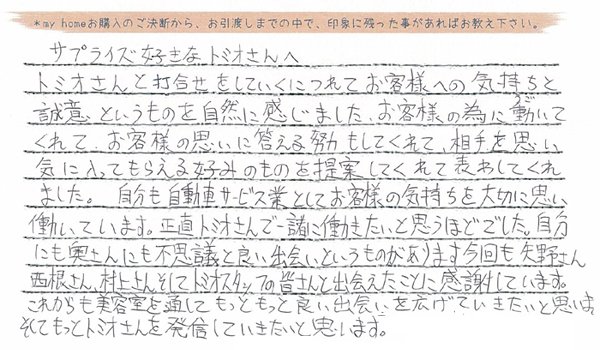 *my homeお購入のご決断から、お引渡しまでの中で、印象に残った事があればお教え下さい。
サプライズ好きなトミオさんへ
トミオさんと打合せをしていくにつれてお客様への気持ちと
誠意というものを自然に感じました。お客様の為に動いて
くれて お客様の思いに答える努力もしてくれて、相手を思い
気に入ってもらえる好みのものを提案してくれて表わしてくれ
ました。 自分も自動車サービス業としてお客様の気持ちを大切に思い
働いています。正直トミオさんで一諸に働きたいと思うほどでした。自分
にも奥さんにも不思議と良い出会いというものがあります今回も矢野さん
西根さん、村上さんそしてトミオスタッフの皆さんと出会えたことに感謝しています。
これからも美容室を通してもっともっと良い出会いを広げていきたいと思います
そしてもっとトミオさんを発信していきたいと思います。